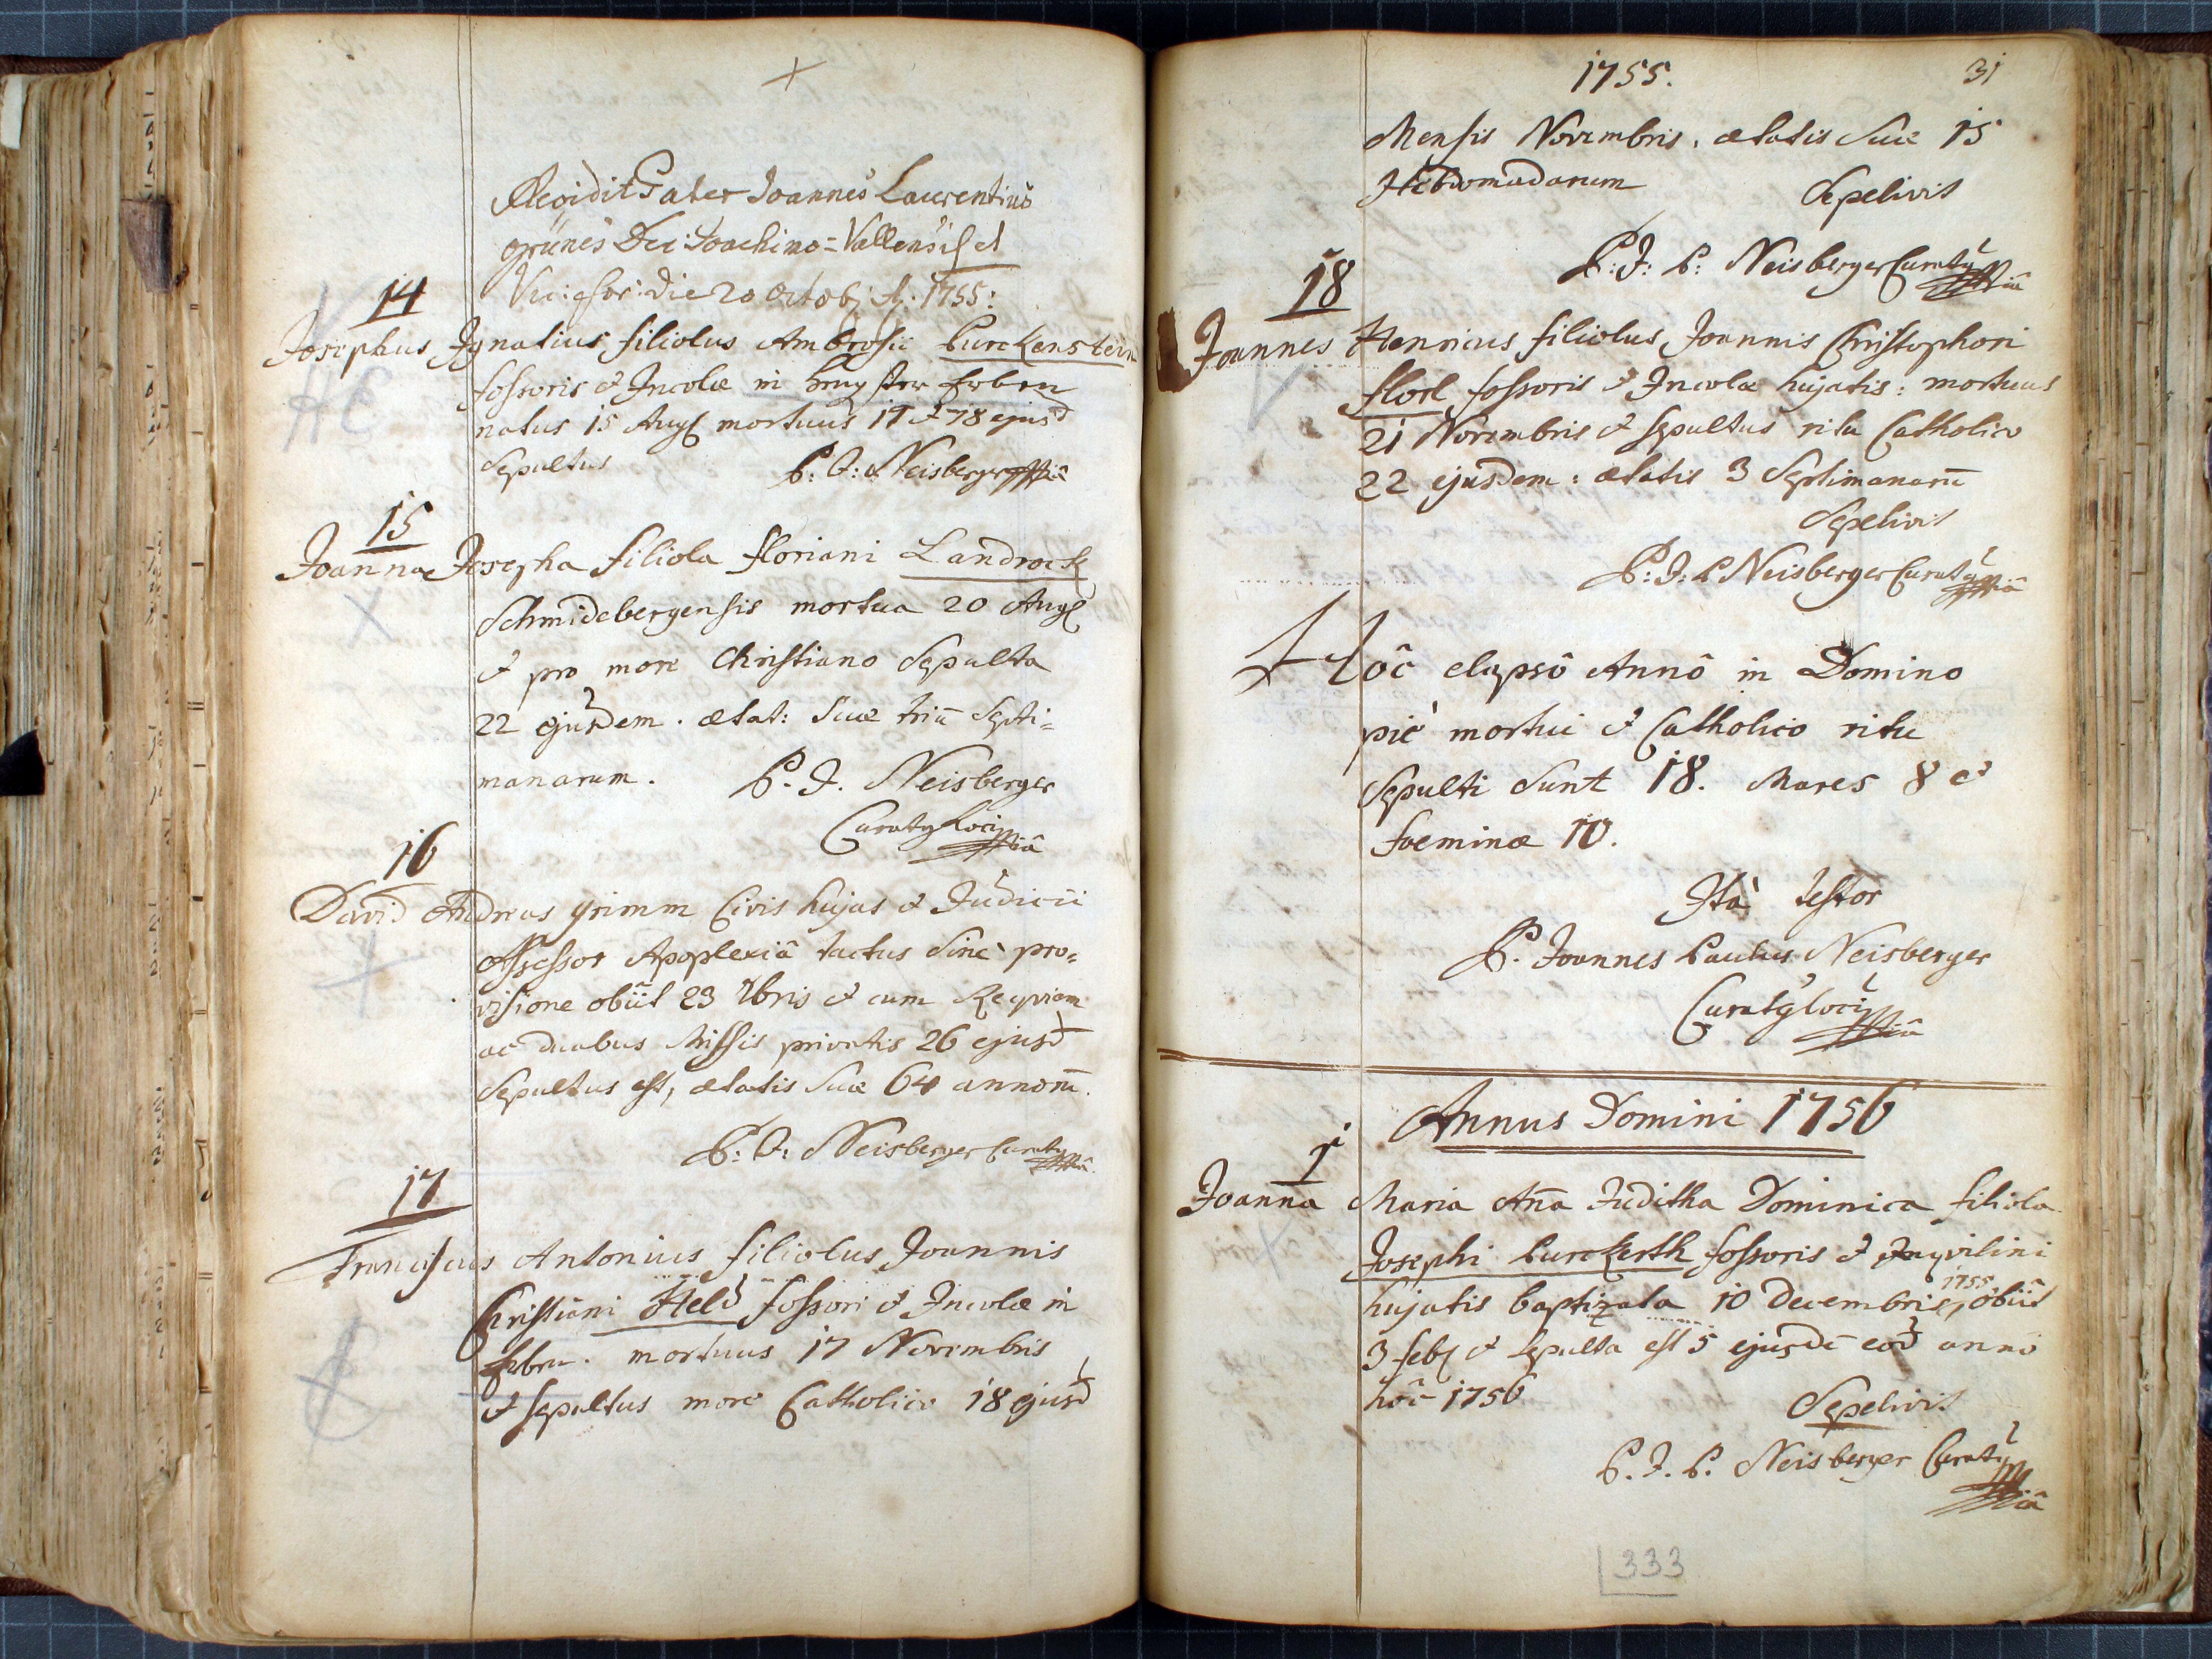 Joannes Laurentius
grünes Dec: Joachimo=Vallensis et
die 20 1755:
14
Josephus Ignatius filiolus Ambrosii Purckenstein
fossoris et Incolæ in
natus 15 Aug mortuus 17 et 18 ejusd
Sepultus P: J: Neisberger mpiâ
15
Joanna Josepha filiola Floriani Landrock
Schmidebergensis mortua 20 Aug
et pro more Christiano Sepulta
22 ejusdem. ætat: Suæ triū Septi=
manarum. P. J. Neisberger
Curatq Loci mpiâ
16
David Andreas grimm Civis hujas et Judicii
Assessor Apoplexiâ tactus Sinè pro=
visione obiit 23 7bris et cum Requiem
ac duabus Missis privatis 26 ejusd
Sepultus est, ætatis Suæ 64 annorū.
P: J: Neisberger Curatq mpiâ.
17
Franciscus Antonius filiolus Joannis
Christiani Held fossori et Incolæ in
mortuus 17 Novembris
et sepultus more Catholico 18 ejusd
1755. 31
Mensis Novembris, ætatis Suæ 15
Hebdomadarum Sepelivit
P: J: P: Neisberger Curatq mpiâ
18
Joannes Henricus filiolus Joannis Christophori
fossoris et Incolæ hujatis: mortuus
21 Novembris et sepultus ritu Catholico
22 ejusdem: ætatis 3 Septimanarū
Sepelivit
P: J: P Neisberger Curatq mpiâ
Hôc elapsô Annô in Domino
piè mortui et Catholico ritu
Sepulti Sunt 18. Mares 8 et
foeminæ 10.
Ità testor
P. Joannes Paulus Neisberger
Curatq loci mpiâ
Annus Domini 1756
1
Joanna Maria Aña Juditha Dominica filiola
Josephi Purckerth fossoris et Inquilini
1755
hujatis baptizata 10 Decembris, obiit
3 feb et sepulta est 5 ejusdē eod annô
hôc 1756 Sepelivit
P. J. P. Neisberger Curatq
mpiâ
333